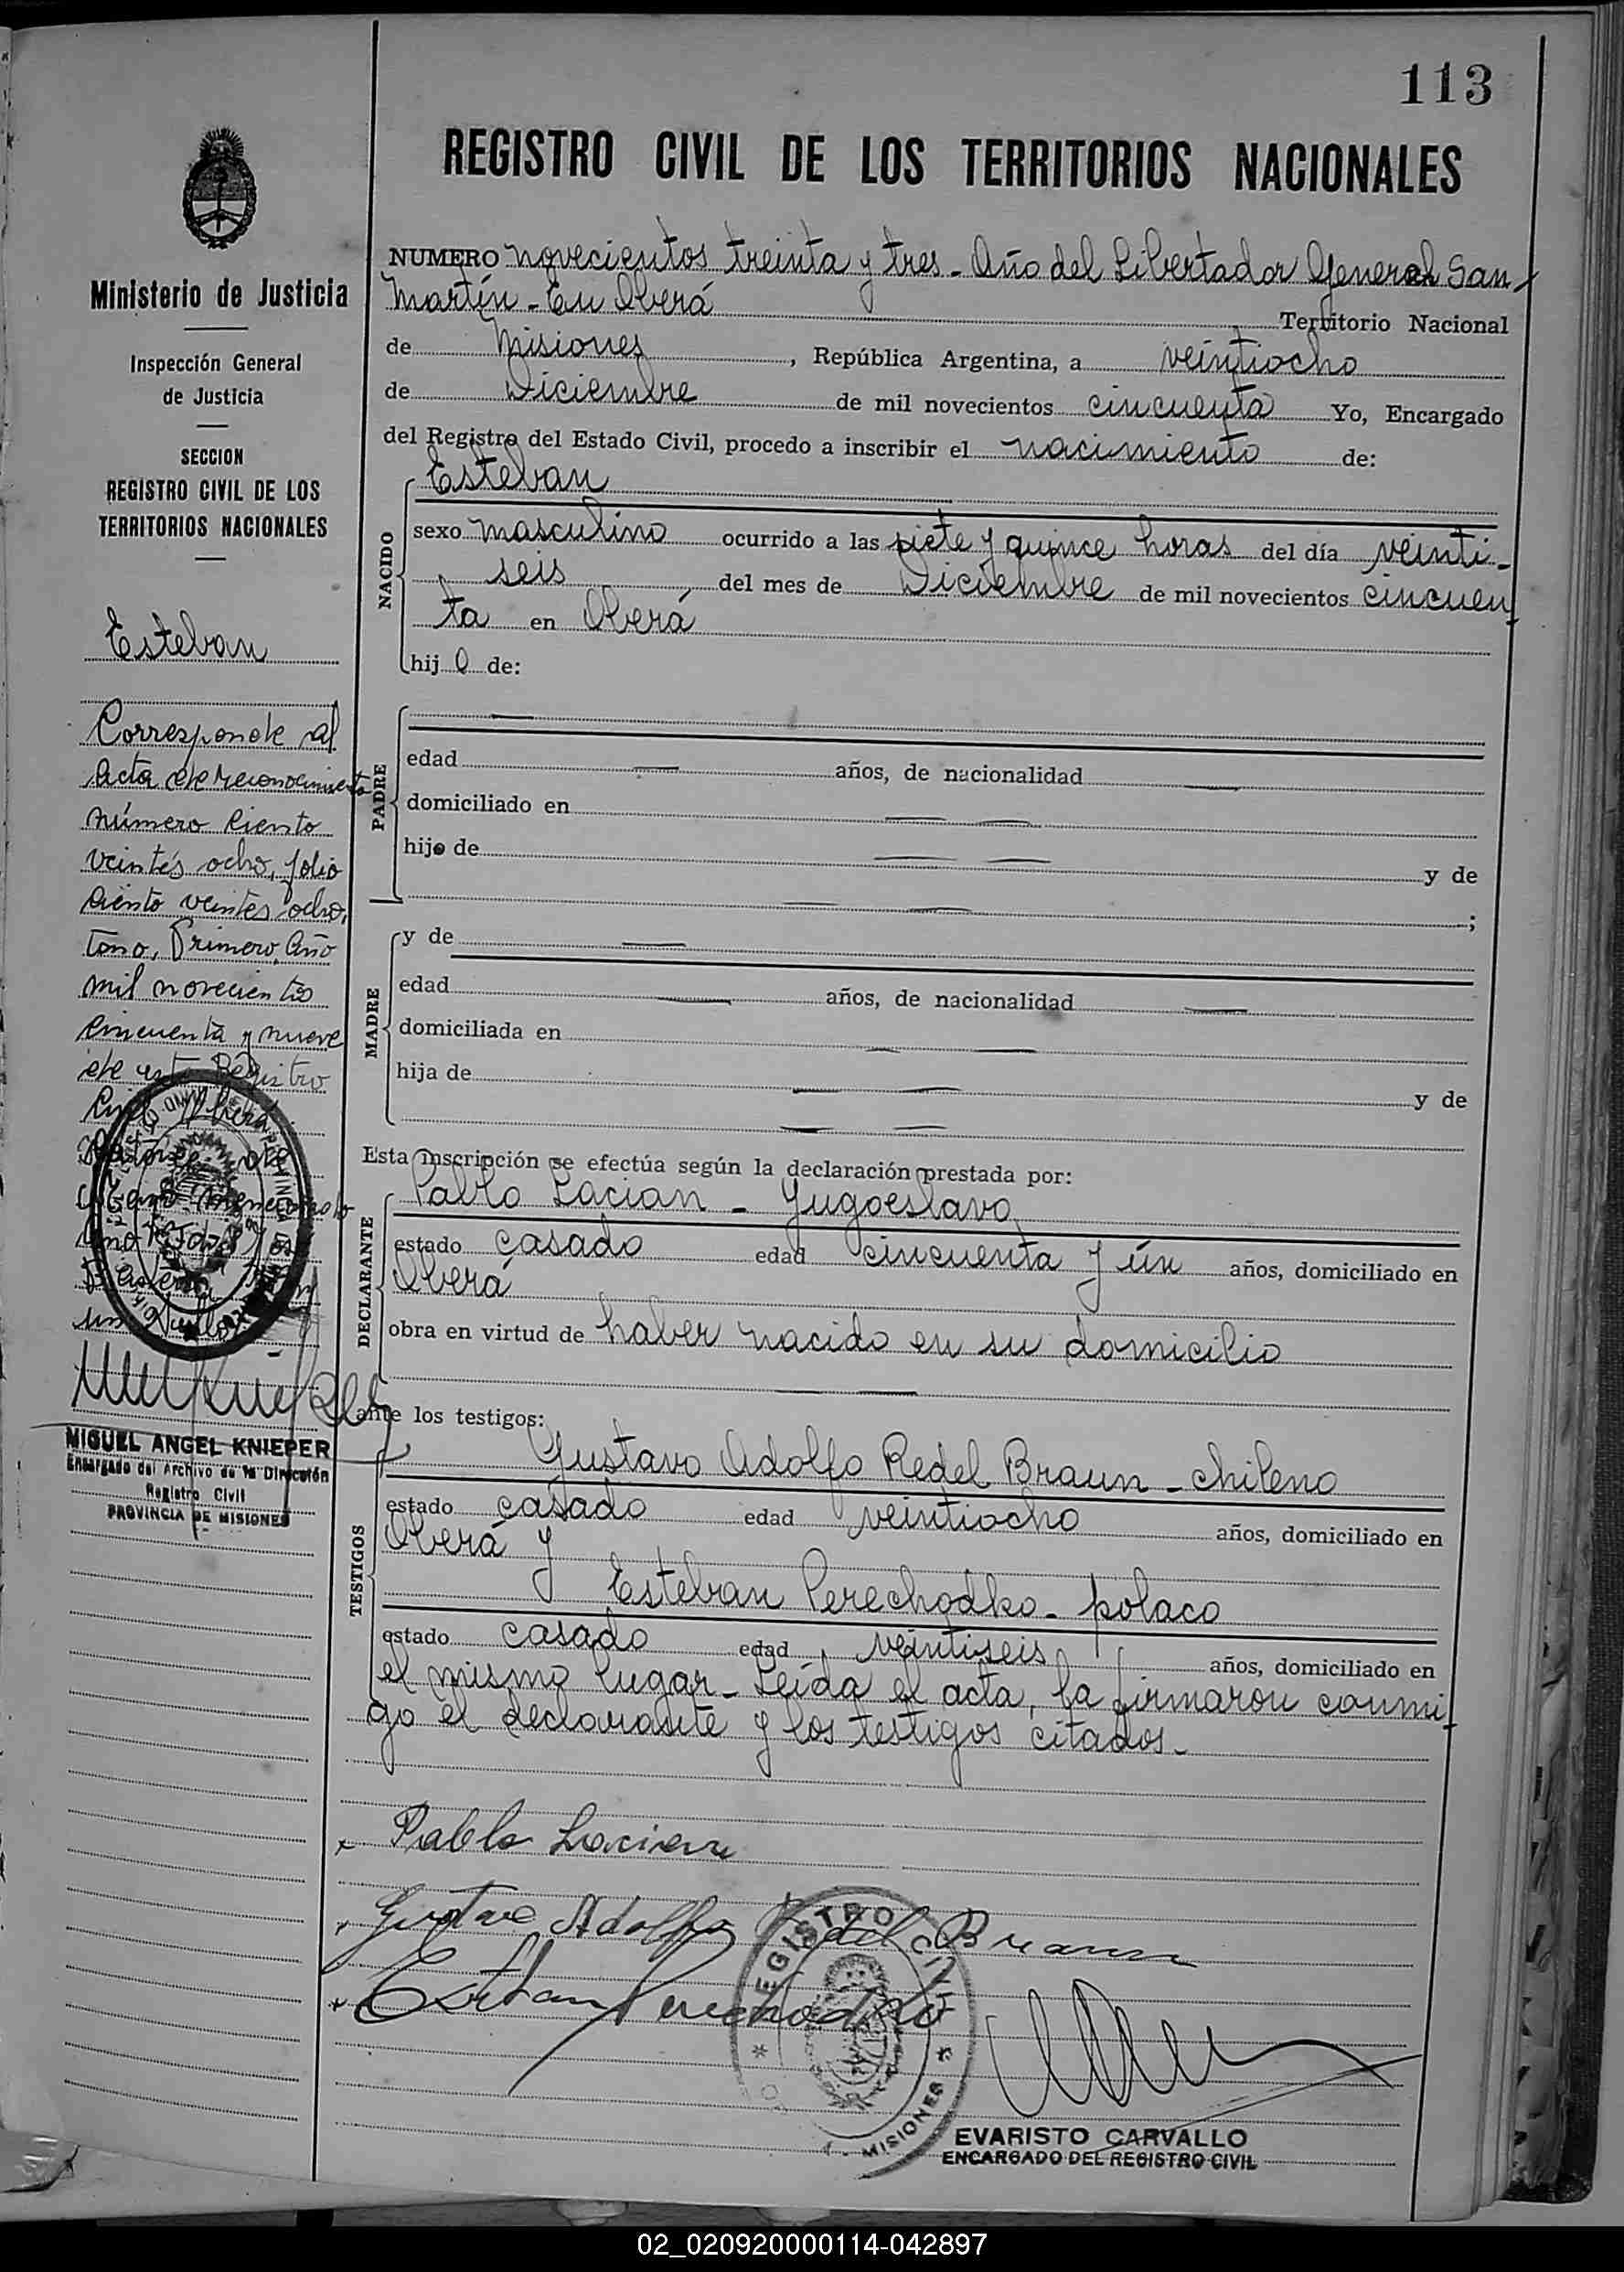 113
REGISTRO CIVIL DE LOS TERRITORIOS NACIONALES
Ministerio de Justicia
Inspección General
de Justicia
SECCION
REGISTRO CIVIL DE LOS
TERRITORIOS NACIONALES
Esteban
Corresponde al
Acta de reconocimiento
número Ciento
veintes ocho, folio
Ciento veintes ocho,
tomo, Primero, Año
mil novecientos
Cincuenta y nueve
de este Registro
MIGUEL ANGEL KNIEPER
Encargado del Archivo de la Dirección
Registro Civil
PROVINCIA DE MISIONES
NUMERO novecientos treinta y tres - Año del Libertador General San
Martín - En Oberá Territorio Nacional
de Misiones, República Argentina, a veintiocho
de Diciembre de mil novecientos cincuenta Yo, Encargado
del Registro del Estado Civil, procedo a inscribir el nacimiento de:
NACIDO
Esteban
sexo masculino ocurrido a las siete y quince horas del día veinti-
seis del mes de Diciembre de mil novecientos cincuen
ta en Oberá
hijo de:
PADRE
edad años, de nacionalidad
domiciliado en
hijo de y de
;
MADRE
y de
edad años, de nacionalidad
domiciliada en
hija de y de
Esta inscripción se efectúa según la declaración prestada por:
DECLARANTE
Pablo Lacian - Yugoeslavo
estado casado edad cincuenta y ún años, domiciliado en
Oberá
obra en virtud de haber nacido en su domicilio
ante los testigos:
TESTIGOS
Gustavo Adolfo Redel Braun - chileno
estado casado edad veintiocho años, domiciliado en
Oberá y
Esteban Perechodko - polaco
estado casado edad veintiseis años, domiciliado en
el mismo lugar - Leída el acta, la firmaron conmi-
go el declarante y los testigos citados.-
Pablo Lacian
Gustavo Adolfo Redel Braun
Esteban Perechodko
REGISTRO CIVIL
MISIONES
EVARISTO CARVALLO
ENCARGADO DEL REGISTRO CIVIL
02_020920000114-042897